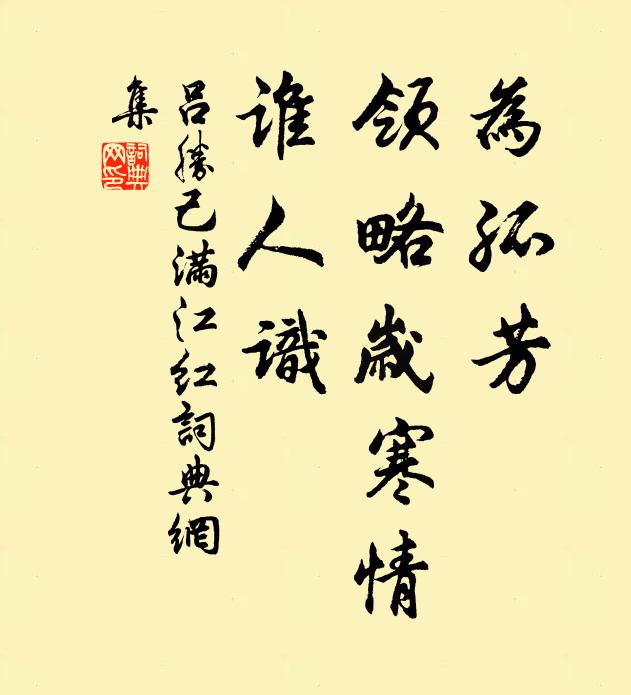 為孤芳
領略歲寒情
誰人識
吕勝己滿江紅詞典網
集
詞典網印